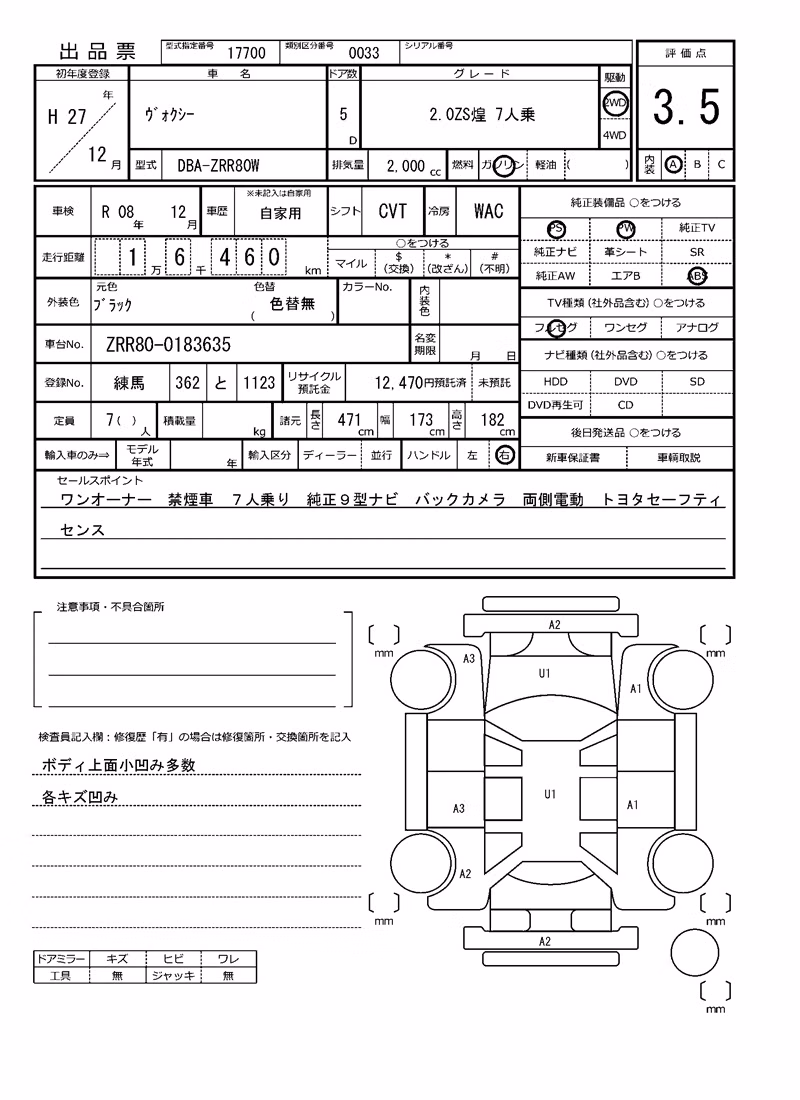 出品票 型式指定番号 17700 類別区分番号 0033 シリアル番号
評価点
3.5
内装 A B C
初年度登録 車名 ドア数 グレード 駆動
H 27年 12月 ヴォクシー 5D 2.0ZS煌 7人乗 2WD 4WD
型式 DBA-ZRR80W 排気量 2,000cc 燃料 ガソリン 軽油 ( )
車検 R 08年 12月 車歴 ※未記入は自家用 自家用 シフト CVT 冷房 WAC
走行距離 1万6千460km ○をつける
マイル $(交換) *(改ざん) #(不明)
外装色 元色 ブラック 色替 (色替無) カラーNo. 内装色
車台No. ZRR80-0183635 名変期限 月 日
登録No. 練馬 362 と 1123 リサイクル預託金 12,470円預託済 未預託
定員 7( )人 積載量 kg 諸元 長さ 471cm 幅 173cm 高さ 182cm
輸入車のみ⇒ モデル年式 年 輸入区分 ディーラー 並行 ハンドル 左 右
純正装備品 ○をつける
PS PW 純正TV
純正ナビ 革シート SR
純正AW エアB ABS
TV種類(社外品含む)○をつける
フルセグ ワンセグ アナログ
ナビ種類(社外品含む)○をつける
HDD DVD SD
DVD再生可 CD
後日発送品 ○をつける
新車保証書 車輌取説
セールスポイント
ワンオーナー 禁煙車 7人乗り 純正9型ナビ バックカメラ 両側電動 トヨタセーフティ
センス
注意事項・不具合箇所
検査員記入欄:修復歴「有」の場合は修復箇所・交換箇所を記入
ボディ上面小凹み多数
各キズ凹み
ドアミラー キズ ヒビ ワレ
工具 無 ジャッキ 無
A2
mm mm
A3 U1 A1
A3 U1 A1
A2
mm mm
A2
mm